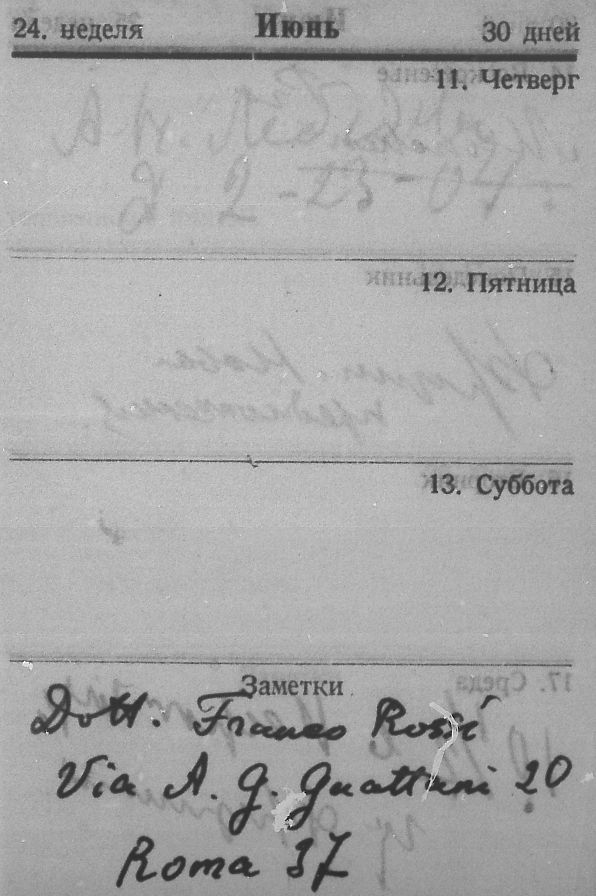 24. неделя Июнь 30 дней
11. Четверг
12. Пятница
13. Суббота
Заметки
Dott. Franco Rossi
Via A. G. Guattani 20
Roma 37